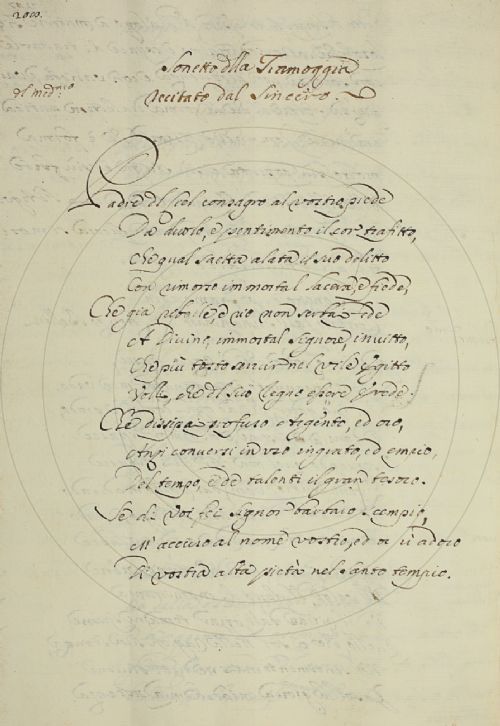 2000.
Sonetto dlla Tramoggia
del med.mo
recitato dal Sincero.
Padre dl Ciel consagro al vostro piede
Da duolo, e pentimento il cor trafitto,
Che qual saetta alata il suo delitto
Con rimorso immortal lacera, e fiede,
Che già ribelle, e reo non serbò fede
A Divino, immortal Signore, invitto,
Che più tosto servir nel vile Egitto
Volle, che dl suo Regno essere erede.
Che dissipa profuso Argento, ed oro,
Anzi conversi in uso ingrato, ed empio,
Del tempo, e de talenti il gran tesoro.
Se di voi fei Signor barbaro scempio,
M'accuso al nome vostro, ed or v'adoro
Di vostra alta pietà nel santo tempio.